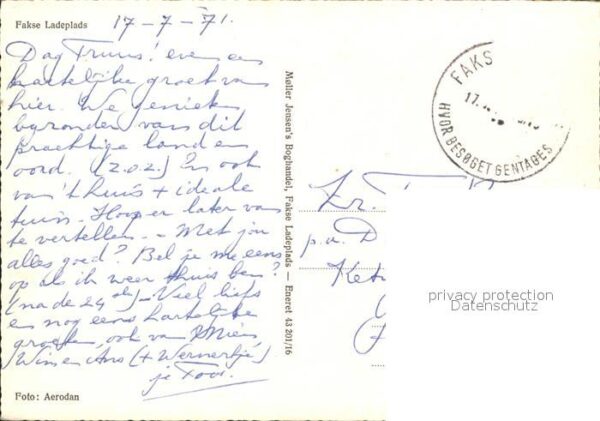 Fakse Ladeplads
17-7-71.
Dag Truus! even een
hartelijke groet van
hier. We genieten
byzonder van dit
prachtige land en
oord. (z.o.z.) En ook
van 't huis + ideale
tuin. Hoop er later van
te vertellen. - Met jou
alles goed? Bel je me eens
op als ik weer thuis ben?
(na de 24 ste) - Veel liefs
en nog eens hartelijke
groeten, ook van Miep,
Wim en Ans (+ Wernertje)
je Toos.
Foto: Aerodan
Møller Jensen's Boghandel, Fakse Ladeplads — Eneret 43 201/16
FAKS
17.
HVOR BESØGET GENTAGES
Zr. T
p.a. D
Ket
privacy protection
Datenschutz